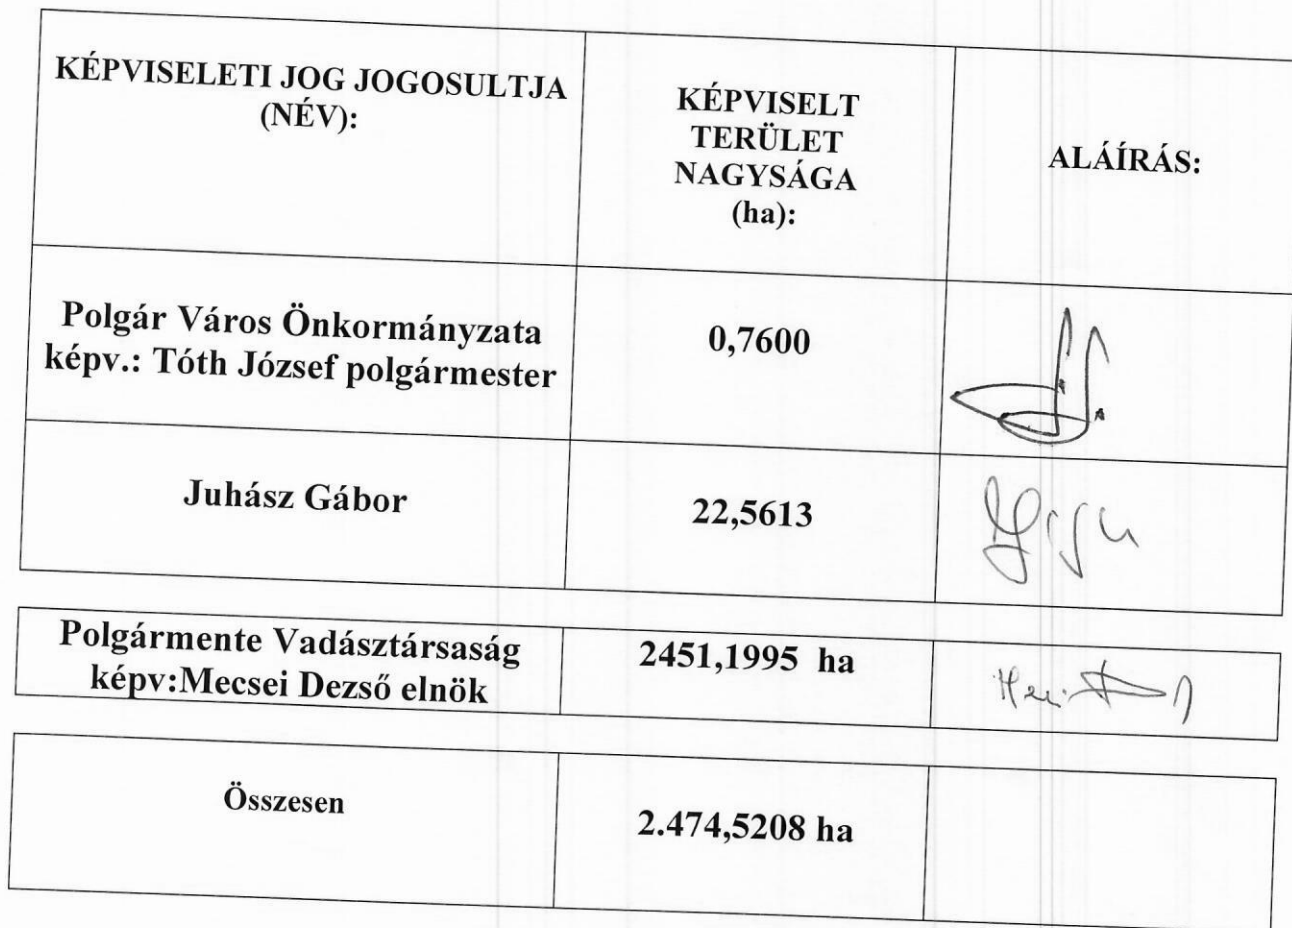 KÉPVISELETI JOG JOGOSULTJA
(NÉV):
KÉPVISELT
TERÜLET
NAGYSÁGA
(ha):
ALÁÍRÁS:
Polgár Város Önkormányzata
képv.: Tóth József polgármester
0,7600
Juhász Gábor
22,5613
Polgármente Vadásztársaság
képv:Mecsei Dezső elnök
2451,1995 ha
Összesen
2.474,5208 ha